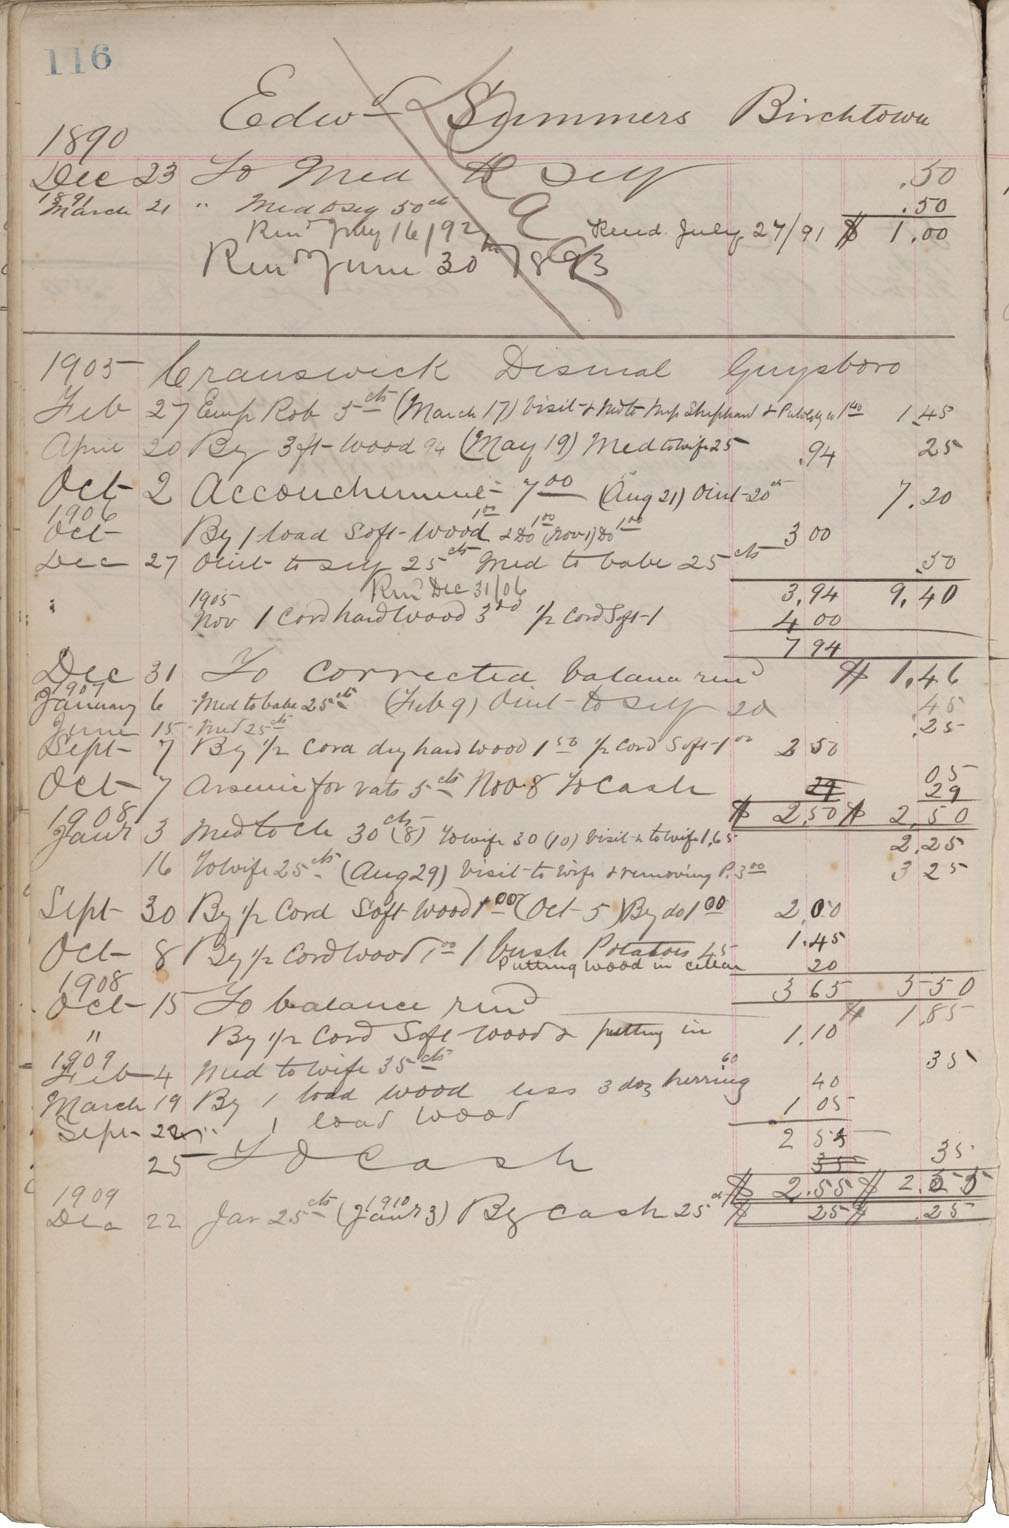 116
Edwd Summers Birchtown
1890
Dec 23 To Med to self .50
1891
March 21 " Med to self 50cts .50
Rend July 16/92 Rend July 27/91 $ 1.00
Rend June 30th 1893
1905 Cranswick Dismal Guysboro
Feb 27 Emp Rob 5cts (March 17) Visit & Med to 1.45
April 20 By 3 ft wood 94 (May 19) Med to wife 25 .94 25
Oct 2 Accouchement 7.00 (Aug 21) Oint 20cts 7.20
1906
Oct By 1 load Soft-wood 1.00 & Do 1.00 (Nov 1) Do 1.00 3 00
Dec 27 Oint to self 25cts Med to babe 25cts .50
Rend Dec 31/06 3.94 9.40
1905
Nov 1 Cord hardwood 3.00 1/2 Cord Soft 1 4 00
7 94
Dec 31 To corrected balance rend $ 1.46
1907
January 6 Med to babe 25cts (Feb 9) Oint to self 20 45
June 15 Med 25cts .25
Sept 7 By 1/2 Cord dry hard wood 1.50 1/2 cord Soft 1.00 2 50
Oct 7 Arsenic for rats 5cts Nov 8 To Cash 05
29 29
$ 2.50 $ 2.50
1908
Janr 3 Med to ch 30cts (8) To wife 30 (10) Visit & to wife 1.65 2.25
16 To wife 25cts (Aug 29) Visit to wife & removing P. 3.00 3 25
Sept 30 By 1/2 Cord Soft wood 1.00 (Oct 5) By do 1.00 2.00
Oct 8 By 1/2 Cord wood 1.00 1 bush Potatoes 45 1.45
Putting wood in cellar 20
1908 3 65 5 50
Oct 15 To balance rend $ 1.85
" By 1/2 Cord Soft wood & putting in 1.10
1909
Feb 4 Med to wife 35cts 35
March 19 By 1 load wood less 3 doz herring 60 40
Sept 22 " 1 load wood 1 05
2 55
25 To Cash 35 35
$ 2.55 $ 2.55
1909
Dec 22 Jar 25cts (1910 Janr 3) By cash 25cts $ 25 $ .25